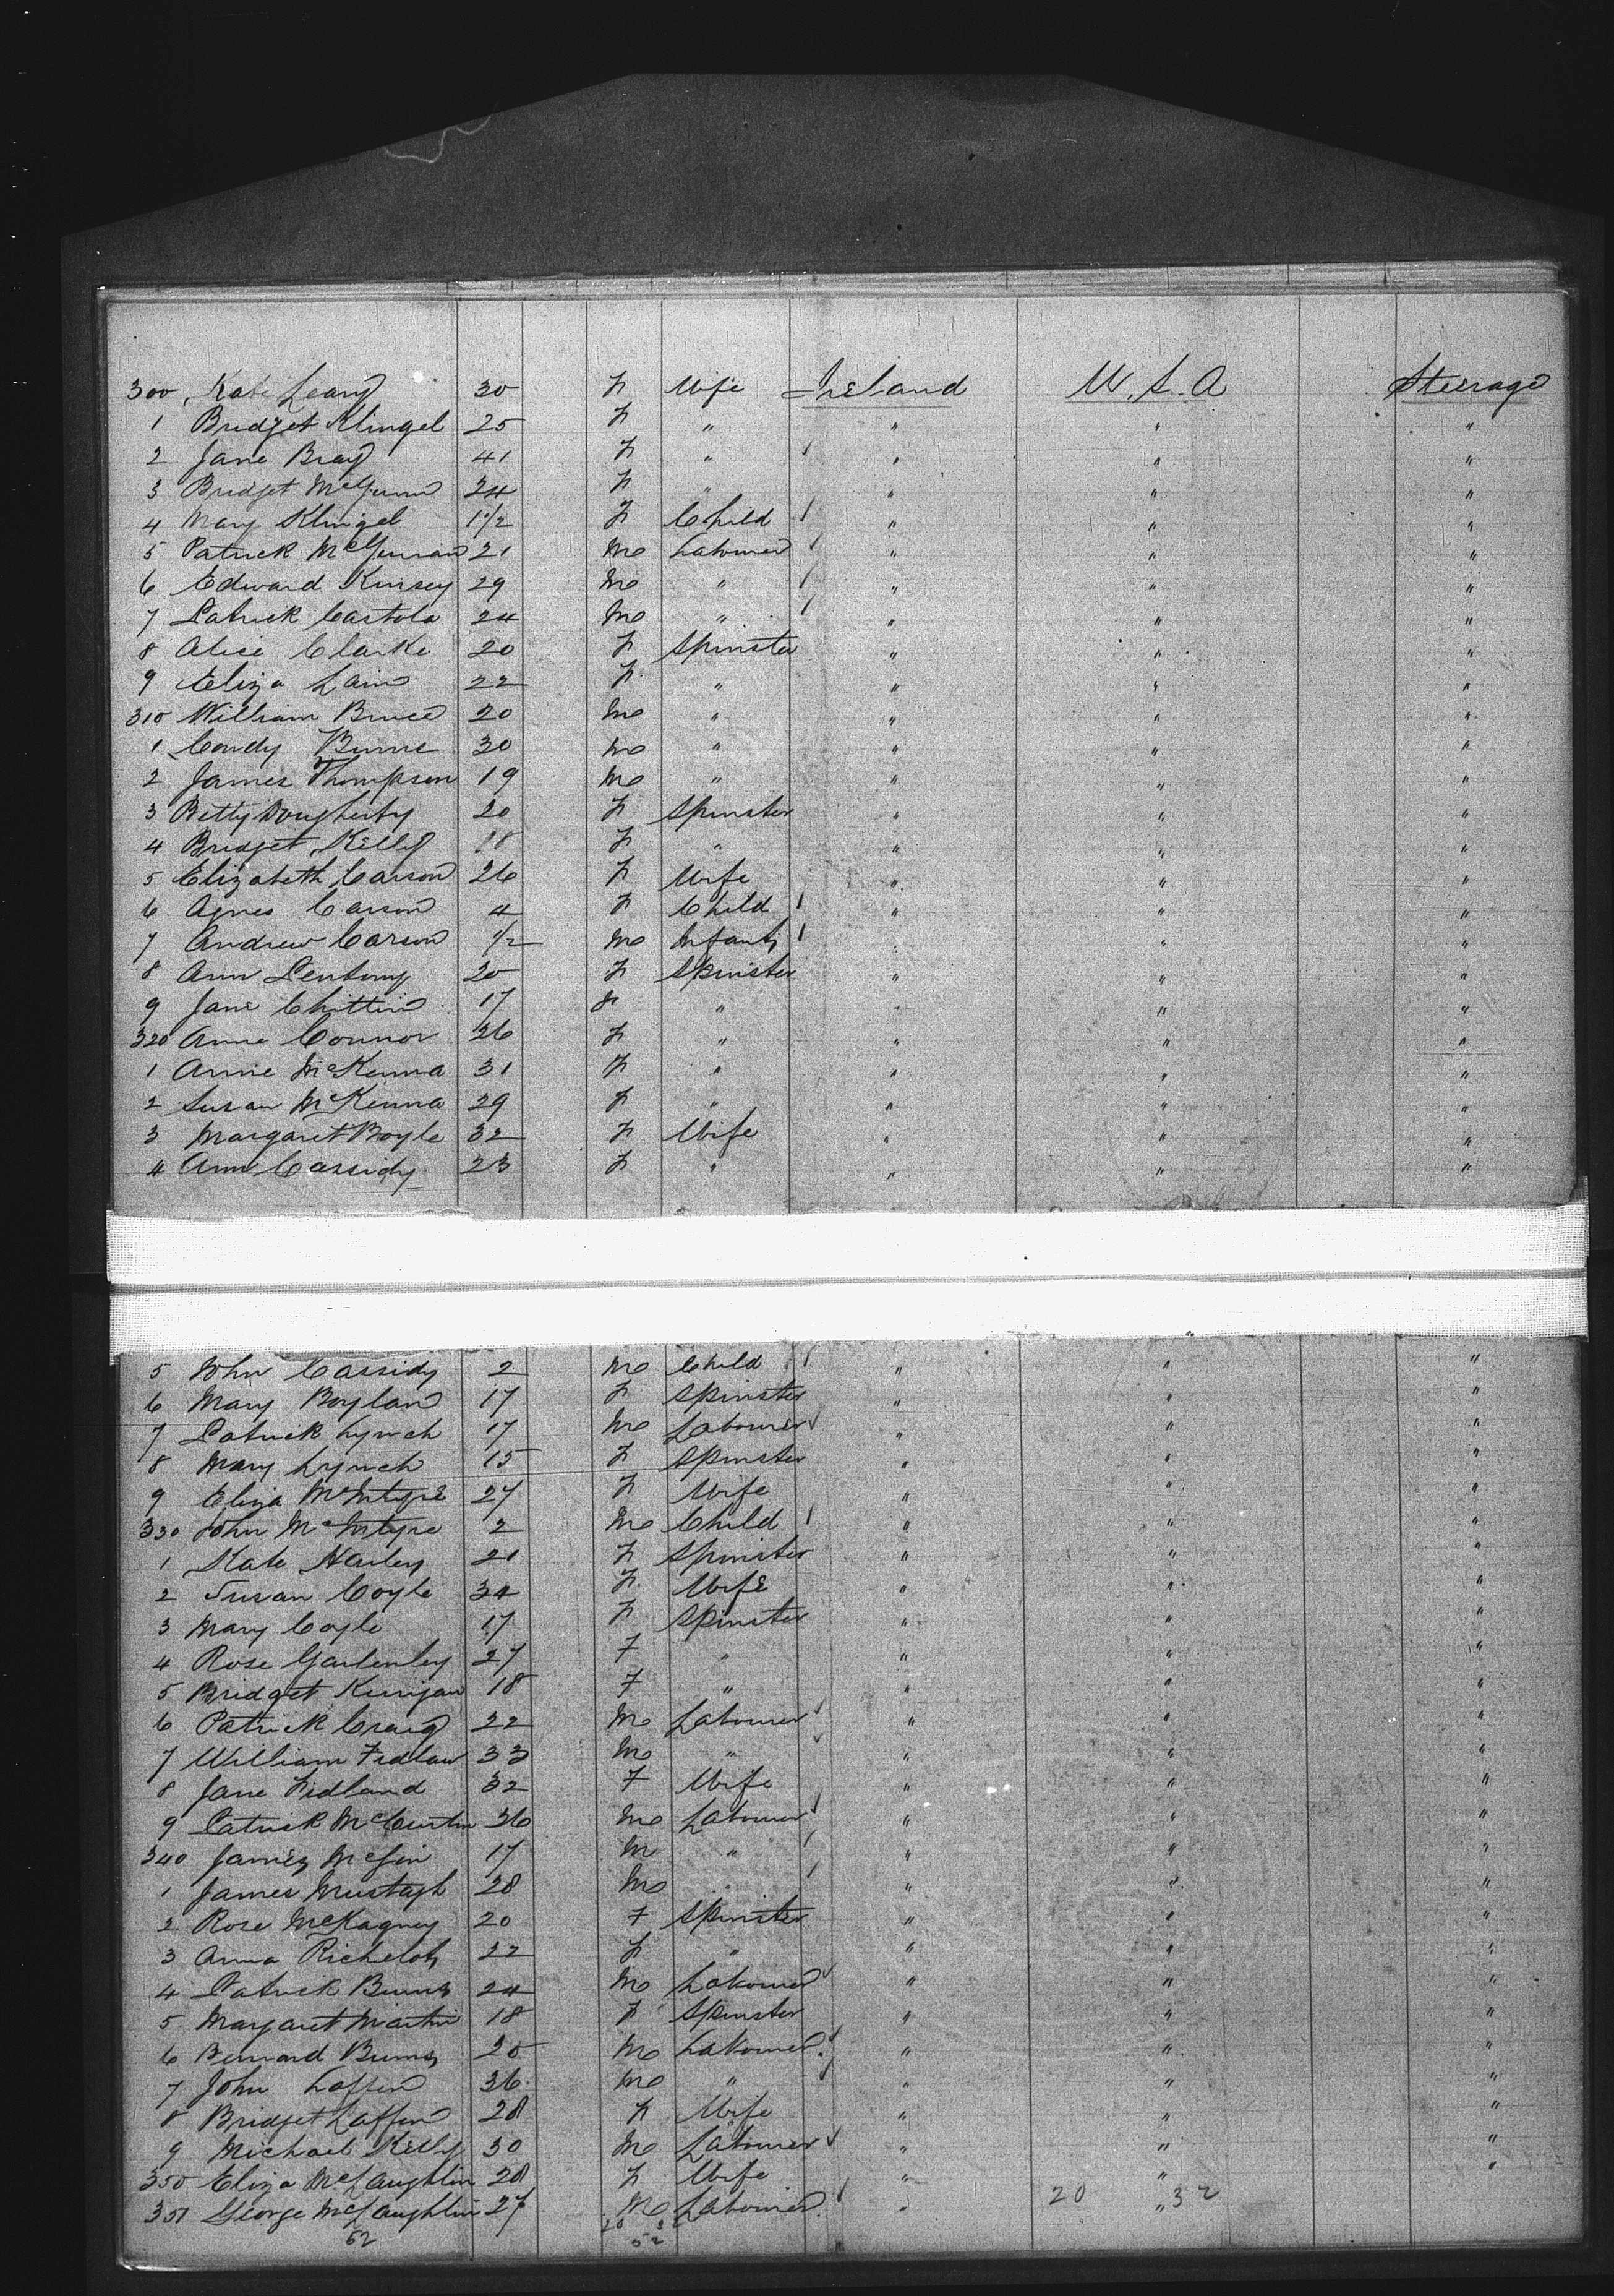 300 Kate Leary 30 F Wife Ireland U.S.A Steerage
1 Bridget Klingel 25 F " " " "
2 Jane Bray 41 F " " " "
3 Bridget 24 F " " " "
4 Mary Klingel 1 1/2 F Child " " "
5 Patrick 21 M Labourer " " "
6 Edward Kinsey 29 M " " " "
7 Patrick Castola 24 M " " " "
8 Alice Clarke 20 F Spinster " " "
9 Eliza 22 F " " " "
310 William Bruce 20 M " " " "
1 Condy Burne 30 M " " " "
2 James Thompson 19 M " " " "
3 Betty Dougherty 20 F Spinster " " "
4 Bridget Kelly 18 F " " " "
5 Elizabeth Carson 26 F Wife " " "
6 Agnes Carson 4 F Child " " "
7 Andrew Carson 1/2 M Infant " " "
8 Ann 20 F Spinster " " "
9 Jane Chittin 17 F " " " "
320 Anne Connor 26 F " " " "
1 Annie McKenna 31 F " " " "
2 Susan McKenna 29 F " " " "
3 Margaret Boyle 32 F Wife " " "
4 Ann Cassidy 23 F " " " "
5 John Cassidy 2 M Child " " "
6 Mary Boylan 17 F Spinster " " "
7 Patrick Lynch 17 M Labourer " " "
8 Mary Lynch 15 F Spinster " " "
9 Eliza McIntyre 27 F Wife " " "
330 John McIntyre 2 M Child " " "
1 Kate Harley 21 F Spinster " " "
2 Susan Coyle 34 F Wife " " "
3 Mary Coyle 17 F Spinster " " "
4 Rose 27 F " " " "
5 Bridget 18 F " " " "
6 Patrick Craig 22 M Labourer " " "
7 William 33 M " " " "
8 Jane Fidland 32 F Wife " " "
9 Patrick 36 M Labourer " " "
340 James 17 M " " " "
1 James Murtagh 28 M " " " "
2 Rose McKagney 20 F Spinster " " "
3 Anna 22 F " " " "
4 Patrick Burns 24 M Labourer " " "
5 Margaret Martin 18 F Spinster " " "
6 Bernard Burns 20 M Labourer " " "
7 John Laffen 36 M " " " "
8 Bridget Laffen 28 F Wife " " "
9 Michael Kelly 30 M Labourer " " "
350 Eliza McLaughlin 28 F Wife " " "
351 George McLaughlin 27 M Labourer " 20 " 32
52 52